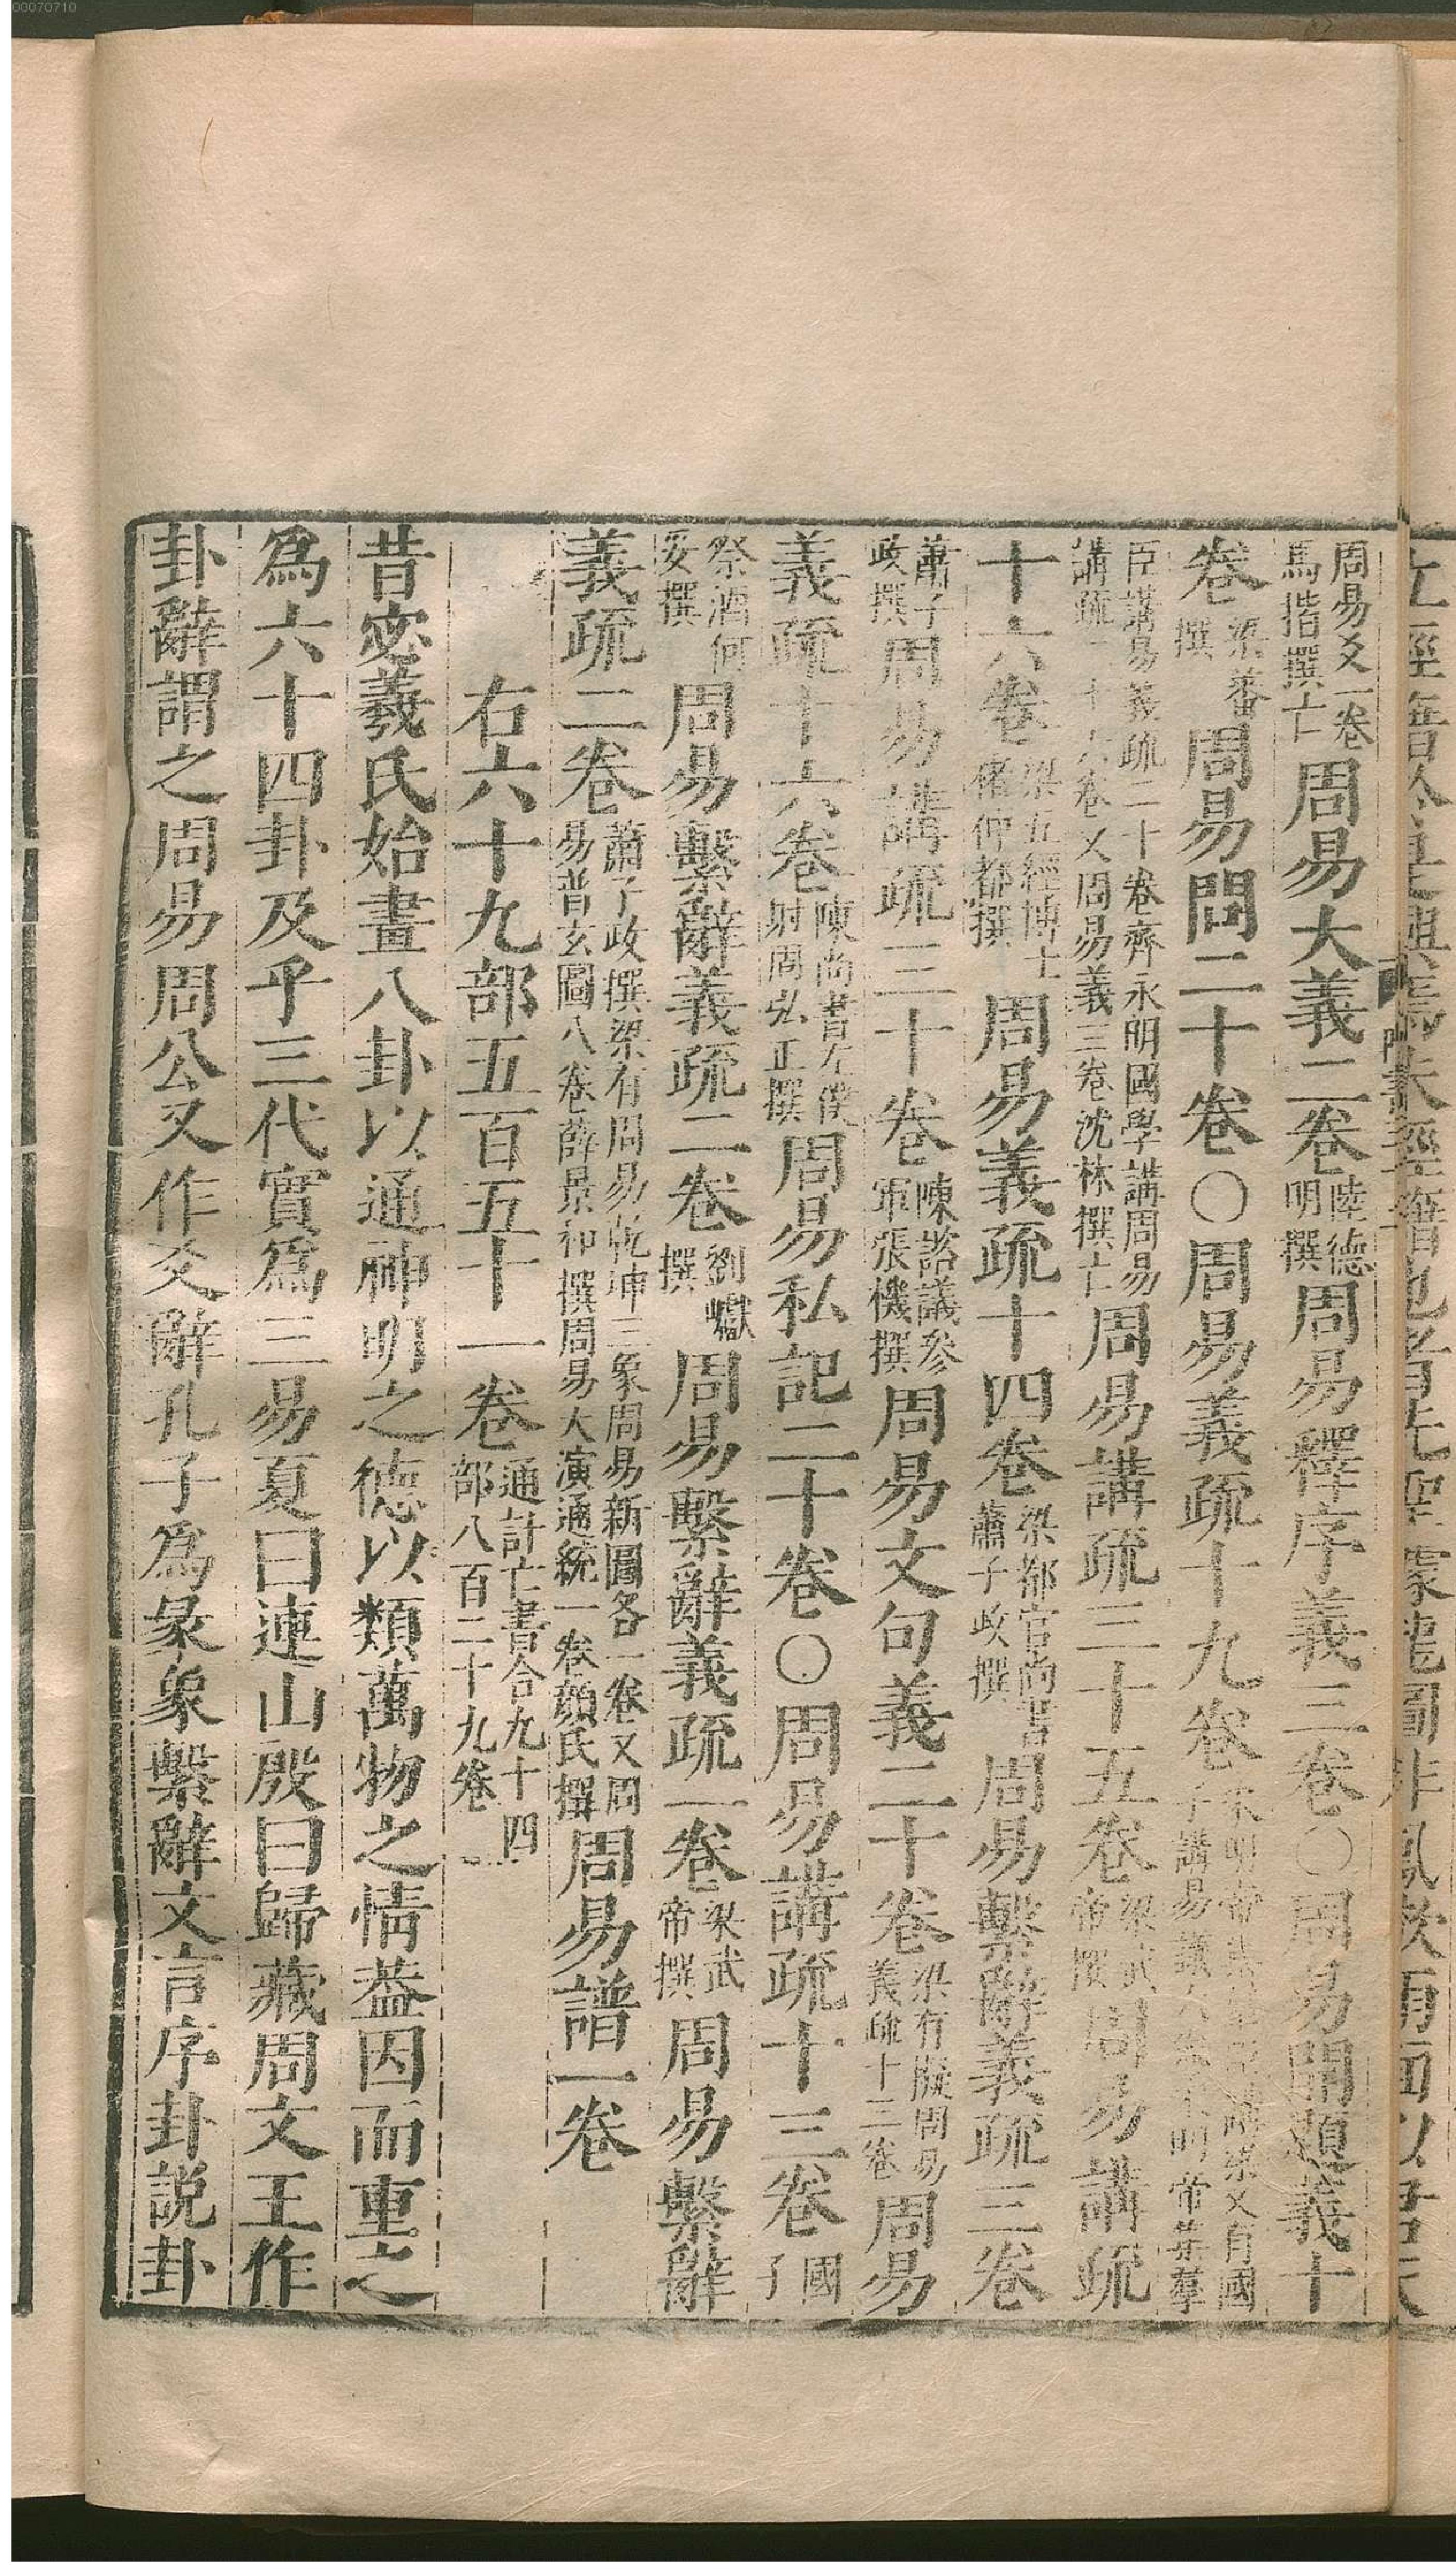 00070710
周易爻一卷馬揩撰亡周易大義二卷陸德明撰周易釋序義三卷○周易開題義十
卷梁蕃撰周易問二十卷○周易義疏十九卷
臣講易義疏二十卷齊永明國學講周易講疏二十六卷又周易義三卷沈林撰亡周易講疏三十五卷梁武帝撰周易講疏
十六卷梁五經博士褚仲都撰周易義疏十四卷梁都官尚書蕭子政撰周易繫辭義疏三卷
蕭子政撰周易講疏三十卷陳諮議參軍張機撰周易文句義二十卷梁有擬周易義疏十三卷周易
義疏十六卷陳尚書左僕射周弘正撰周易私記二十卷○周易講疏十三卷國子
祭酒何妥撰周易繫辭義疏二卷劉巘撰周易繫辭義疏一卷梁武帝撰周易繫辭
義疏二卷蕭子政撰梁有周易乾坤三象周易新圖各一卷又周易普玄圖八卷薛景和撰周易大演通統一卷顏氏撰周易譜一卷
右六十九部五百五十一卷通計亡書合九十四部八百二十九卷
昔宓羲氏始畫八卦以通神明之德以類萬物之情葢因而重之
爲六十四卦及乎三代實爲三易夏曰連山殷曰歸藏周文王作
卦辭謂之周易周公又作爻辭孔子爲彖象繫辭文言序卦說卦